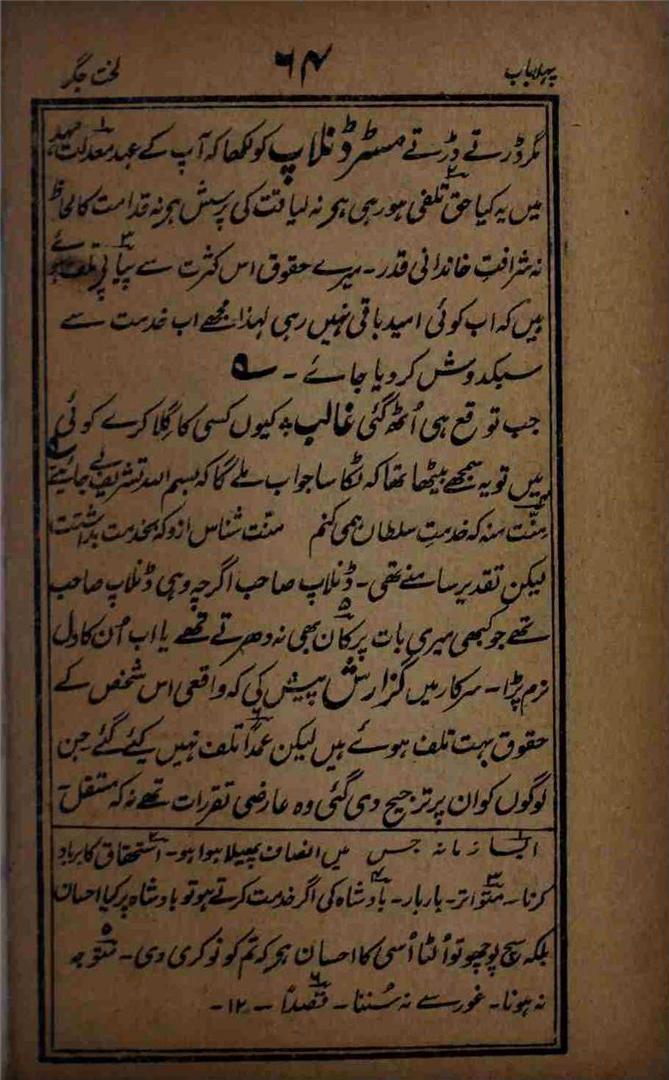 پہلا باب ۶۴ لخت جگر
مگر ڈرتے ڈرتے مسٹر ڈنلاپ کو لکھا کہ آپ کے عہد معدلت مہد
میں یہ کیا حق تلفی ہو رہی ہے نہ لیاقت کی پرسش ہے نہ قدامت کا لحاظ
نہ شرافتِ خاندانی قدر۔ میرے حقوق اس کثرت سے پیاپے تلف ہوئے
ہیں کہ اب کوئی امید باقی نہیں رہی لہذا مجھے اب خدمت سے
سبکدوش کر دیا جائے۔ ۵
جب توقع ہی اُٹھ گئی غالب؞ کیوں کسی کا گِلا کرے کوئی
میں تو یہ سمجھے بیٹھا تھا کہ ٹکا سا جواب ملے گا کہ بسم اللہ تشریف لے جائیے
منّت منہ کہ خدمتِ سلطان ہمی کنم منت شناس ازو کہ بخدمت بداشتت
لیکن تقدیر سامنے تھی۔ ڈنلاپ صاحب اگرچہ وہی ڈنلاپ صاحب
تھے جو کبھی میری بات پر کان بھی نہ دھرتے تھے یا اب اُن کا دل
نرم پڑا۔ سرکار میں گزارش پیش کی کہ واقعی اس شخص کے
حقوق بہت تلف ہوئے ہیں لیکن عمداً تلف نہیں کیئے گئے جن
لوگوں کو ان پر ترجیح دی گئی وہ عارضی تقررات تھے نہ کہ مستقل۔
۱ ایسا زمانہ جس میں انصاف پھیلا ہوا ہو۔ ۲ استحقاق کا برباد
کرنا۔ ۳ متواتر۔ بار بار۔ ۴ بادشاہ کی اگر خدمت کرتے ہو تو بادشاہ پر کیا احسان
بلکہ سچ پوچھو تو اُلٹا اُسی کا احسان ہے کہ تم کو نوکری دی۔ ۵ متوجہ
نہ ہونا۔ غور سے نہ سُننا۔ ۶ قصداً۔ ۱۲۔